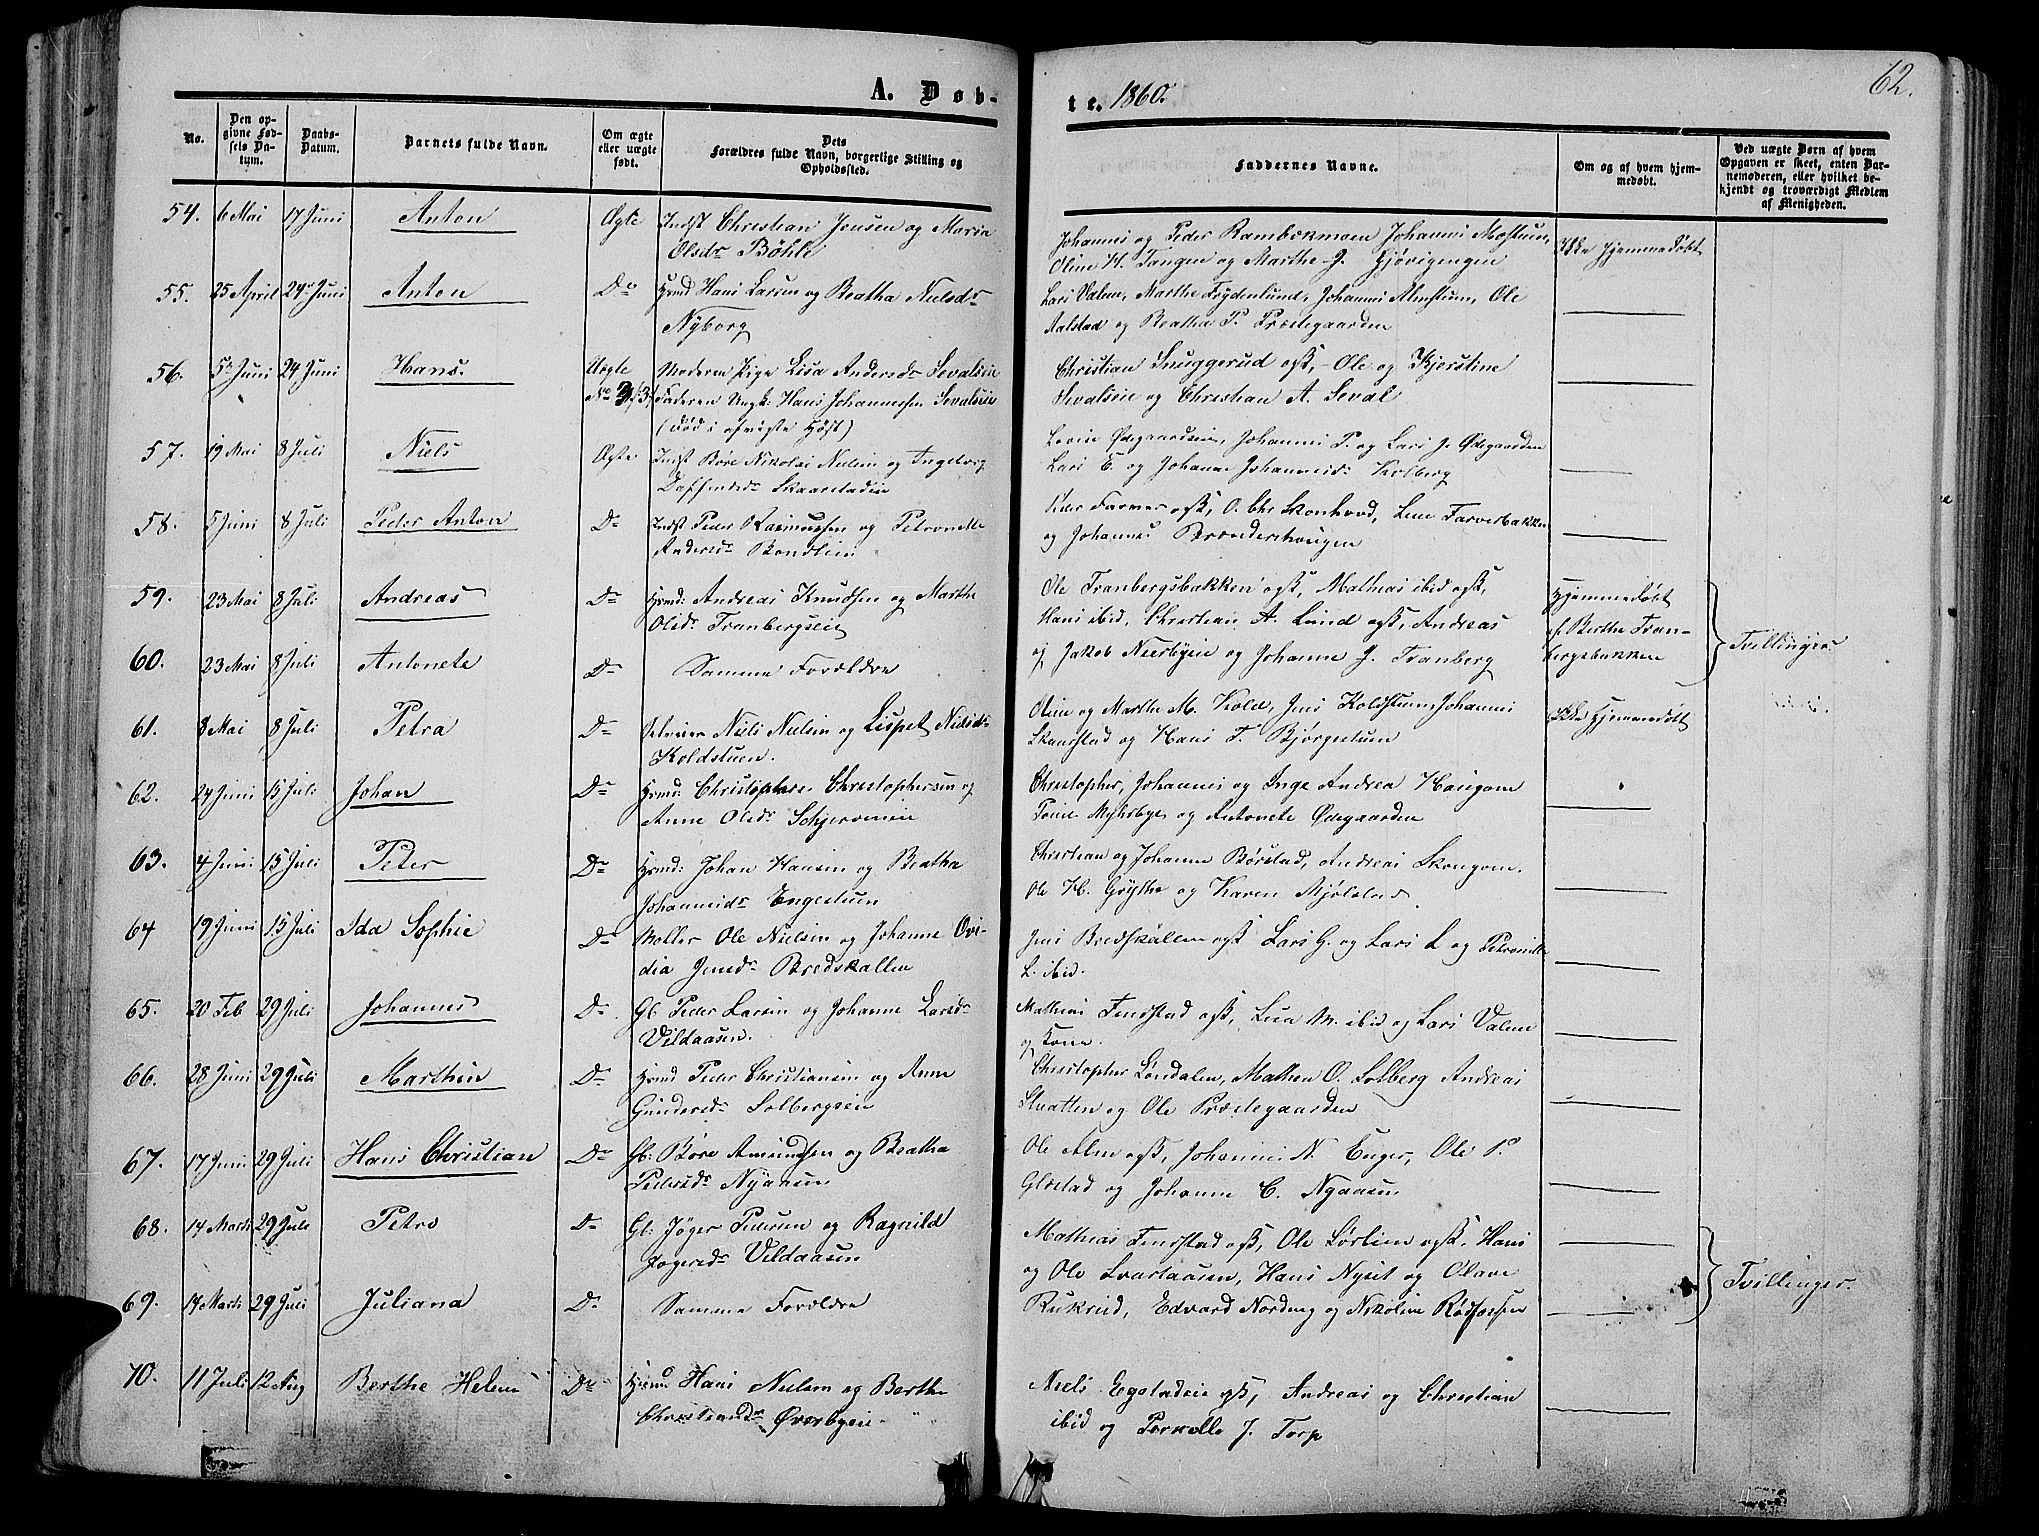 62.
A. Døb-
te. 1860.
No.
Den op-
givne Fød-
sels Da-
tum.
Daabs-
Datum.
Barnets fulde Navn.
Om ægte
eller uægte
født.
Dets
Forældres fulde Navn, borgerlige Stilling og
Opholdssted.
Faddernes Navne.
Om og af hvem hjem-
medøbt.
Ved uægte Børn af hvem
Opgaven er skeet, enten Bar-
nemoderen, eller hvilket be-
kjendt og troværdigt Medlem
af Menigheden.
54. 6 Mai 17 Juni Anton Ægte Indst Christian Jensen og Maria
Olsdr Böhle
Johannes og Peder Johannes
Oline H. Tangen og Marthe J. Gjøvigengen
Ikke Hjemmedøbt
55. 25 April 24 Juni Anton Do Hmd Hans Larsen og Beatha Nielsdr
Nyborg
Lars Valem, Marthe Frydenlund, Johannes Almstuen, Ole
Aalstad og Beatha P. Præstegaarden
56. 5 Juni 24 Juni Hans. Uægte Moderen Pige Lisa Andersdr Sevalseie
Faderen Ungk: Hans Johannessen Sevalseie
(død i afvigte Høst)
Christian Snuggerud og Ole og Kjerstine
Sevalseie og Christian A. Seval
57. 19 Mai 8 Juli Niels Ægte Indst Böre Nikolai Nielsen og Ingeborg
Skaarstadeie
Johannes P. og Lars J. Ødegaarden
Lars E. og Johanne Johannesdr Kolberg
58. 5 Juni 8 Juli Peder Anton Do Indst Peder Rasmussen og Petronelle
Andersdr Bondlien
Peder Farver og Skonhovd, Lene Farverbakken
og Johannes Brænderihougen
59. 23 Mai 8 Juli Andreas Do Hmd: Andreas Knudsen og Marthe
Olsdr Tranbergseie
Ole Tranbergsbakken og Mathias ibid og
Hans ibid, Christian A. Lund og Andreas
Hjemmedøbt
af Berthe Tran-
bergsbakken
Tvillinger
60. 23 Mai 8 Juli Antonete Do Samme Forældre
og Jakob Neerbyeie og Johanne J. Tranberg
61. 8 Mai 8 Juli Petra Do Niels Nielsen og Lispet Nielsdr
Koldstuen.
Oline og Marthe M. Kolde, Jens Koldstuen Johannes
Skaarstad og Hans T. Bjørgestuen
Ikke Hjemmedøbt
62. 24 Juni 15 Juli Johan Do Hmd: Christopher Christophersen og
Anne Olsdr Schjerven
Christopher, Johannes og Inge Andrea Haugom
Tonie Myhrbye og Antonete Ødegaarden
63. 4 Juni 15 Juli Peter Do Hmd: Johan Hansen og Beatha
Johannesdr Engestuen
Christian og Johanne Børstad, Andreas Skougom.
Ole H. Grythe og Karen Mjølslad
64 19 Juni 15 Juli Ida Sophie Do Møller Ole Nielsen og Johanne Ovi-
dia Jensdr Bredskallen
Jens Bredskallen og Lars G. og Lars L og Petronille
L. ibid.
65. 20 Feb 29 Juli Johannes Do Gb. Peder Larsen og Johanne Larsdr
Vildaasen.
Mathias Finstad og Lisa M. ibid og Lars Valem
og Kone.
66. 28 Juni 29 Juli Marthin Do Hmd Peder Christiansen og Anne
Gundersdr Solbergseie
Christopher Londalen, Mathea O. Solberg Andreas
Sletten og Ole Præstegaarden
67. 17 Juni 29 Juli Hans Christian Do Gb: Böre Amundsen og Beatha
Pedersdr Nyaasen
Ole Alm og Johannes N. Enger, Ole P.
Gløstad og Johanne C. Nyaasen
68. 14 Marts 29 Juli Petro Do Gb: Jöger Pedersen og Ragnild
Jogersdr Vildaasen
Mathias Finstad og Ole Sørlien og Hans
og Ole Svartaasen, Hans Nyset og Olave
Tvillinger.
69. 14 Marts 29 Juli Juliana Do Samme Forældre
Rukrud, Edvard Nordeng og Nikoline Rødfossen
70. 11 Juli 12 Aug Berthe Helene Do Hmd Hans Nielsen og Berthe
Christiansdr Överbyeie
Niels Egstadeie og Andreas og Christian
ibid og Pernelle J. Torp